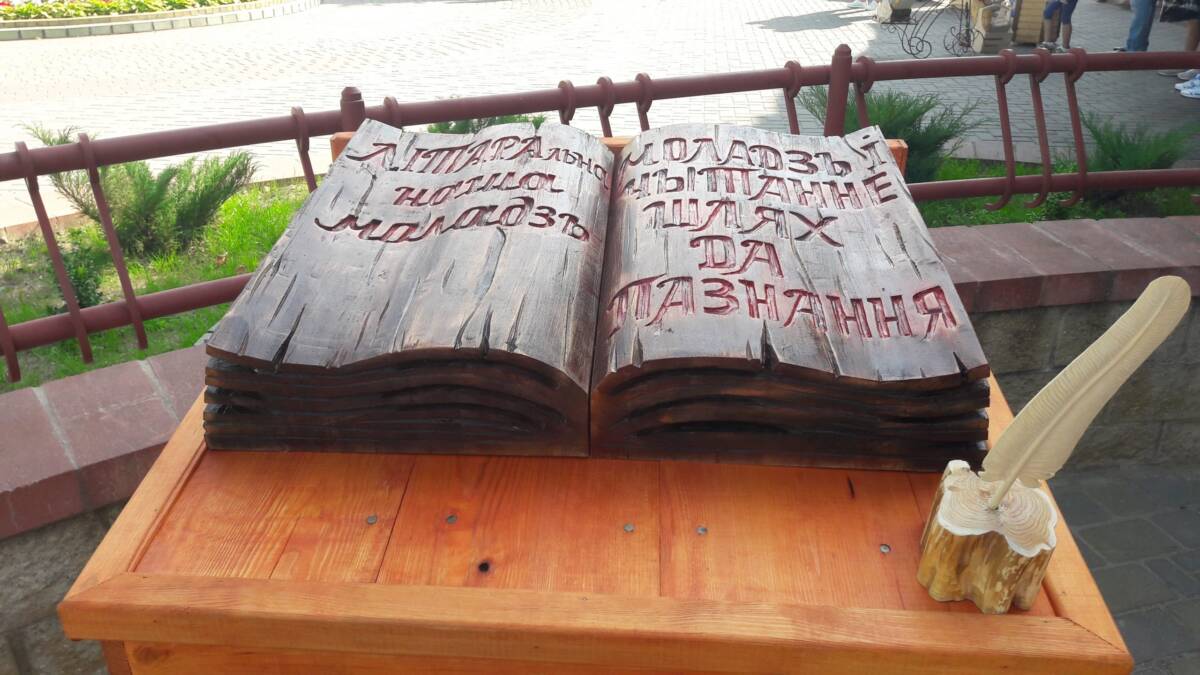 ЛІТАРАльна
наша
моладзь
МОЛАДЗЬ І
ЧЫТАННЕ
ШЛЯХ
ДА
ПАЗНАННЯ